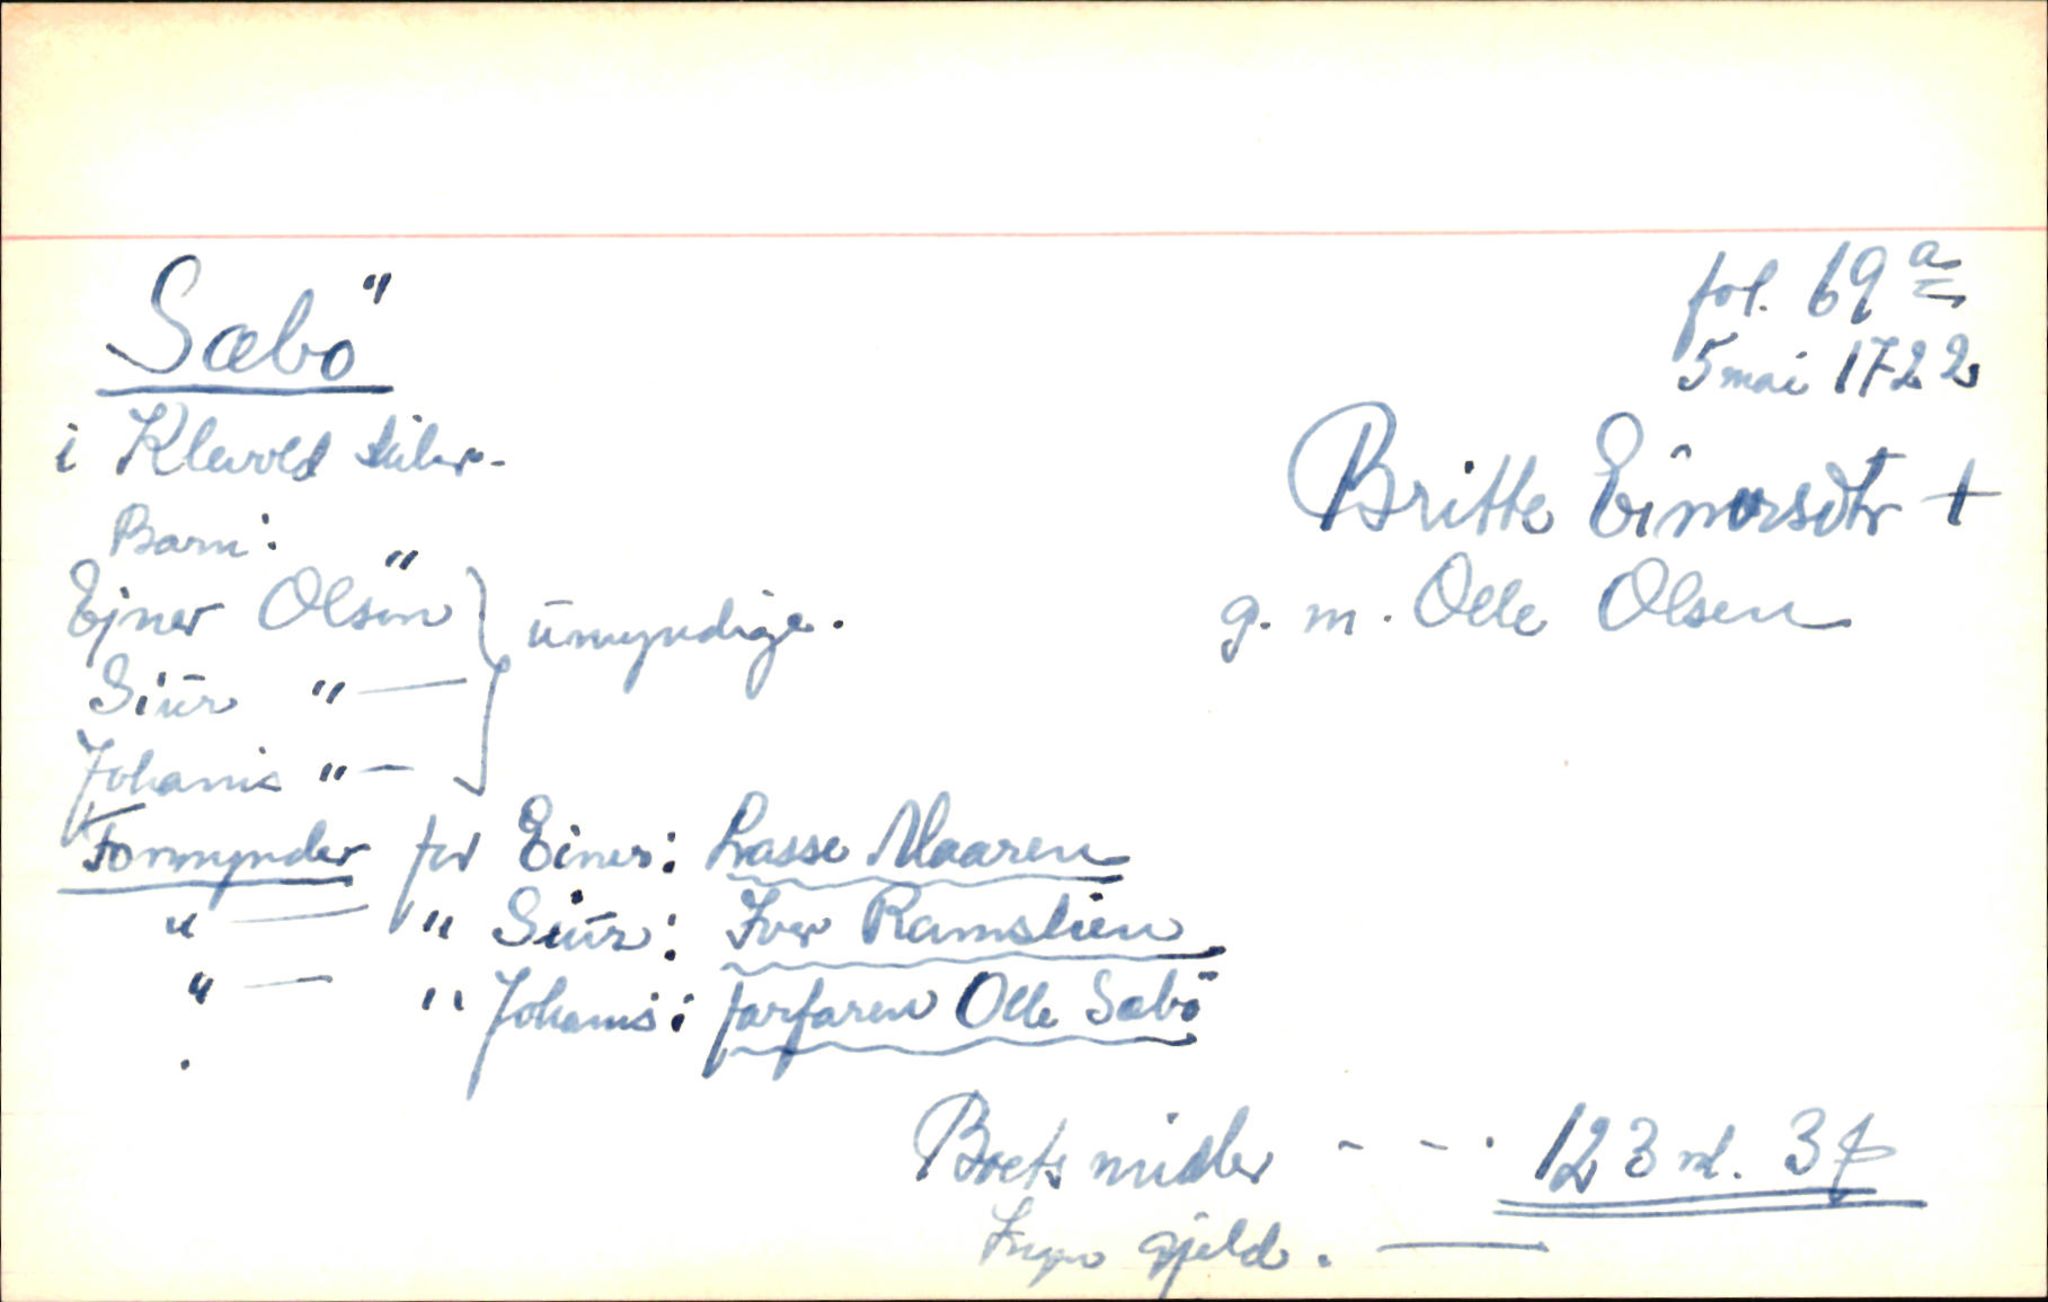 fol. 69 a
5 mai 1722
Sæbö
i Klævold tilær.
Britte Einersdtr +
g. m. Olle Olsen
Barn:
Ejner Olsön } umyndige.
Siur " —
Johanis " —
Formynder for Einer: Lasse Maaren
" — " Siur: Iver Ramstien
" — " Johanis: farfaren Olle Sæbö
Boets midler - - . 123 rd. 3 ß
Ingen gjeld. —